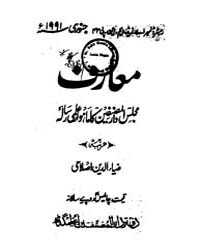 جنوری ۱۹۹۱ء
معارف
مجلس دارالمصنفین کا ماہوار علمی رسالہ
مرتبہ
ضیاء الدین اصلاحی
قیمت چالیس روپے سالانہ
دفتر دارالمصنفین اعظم گڑھ